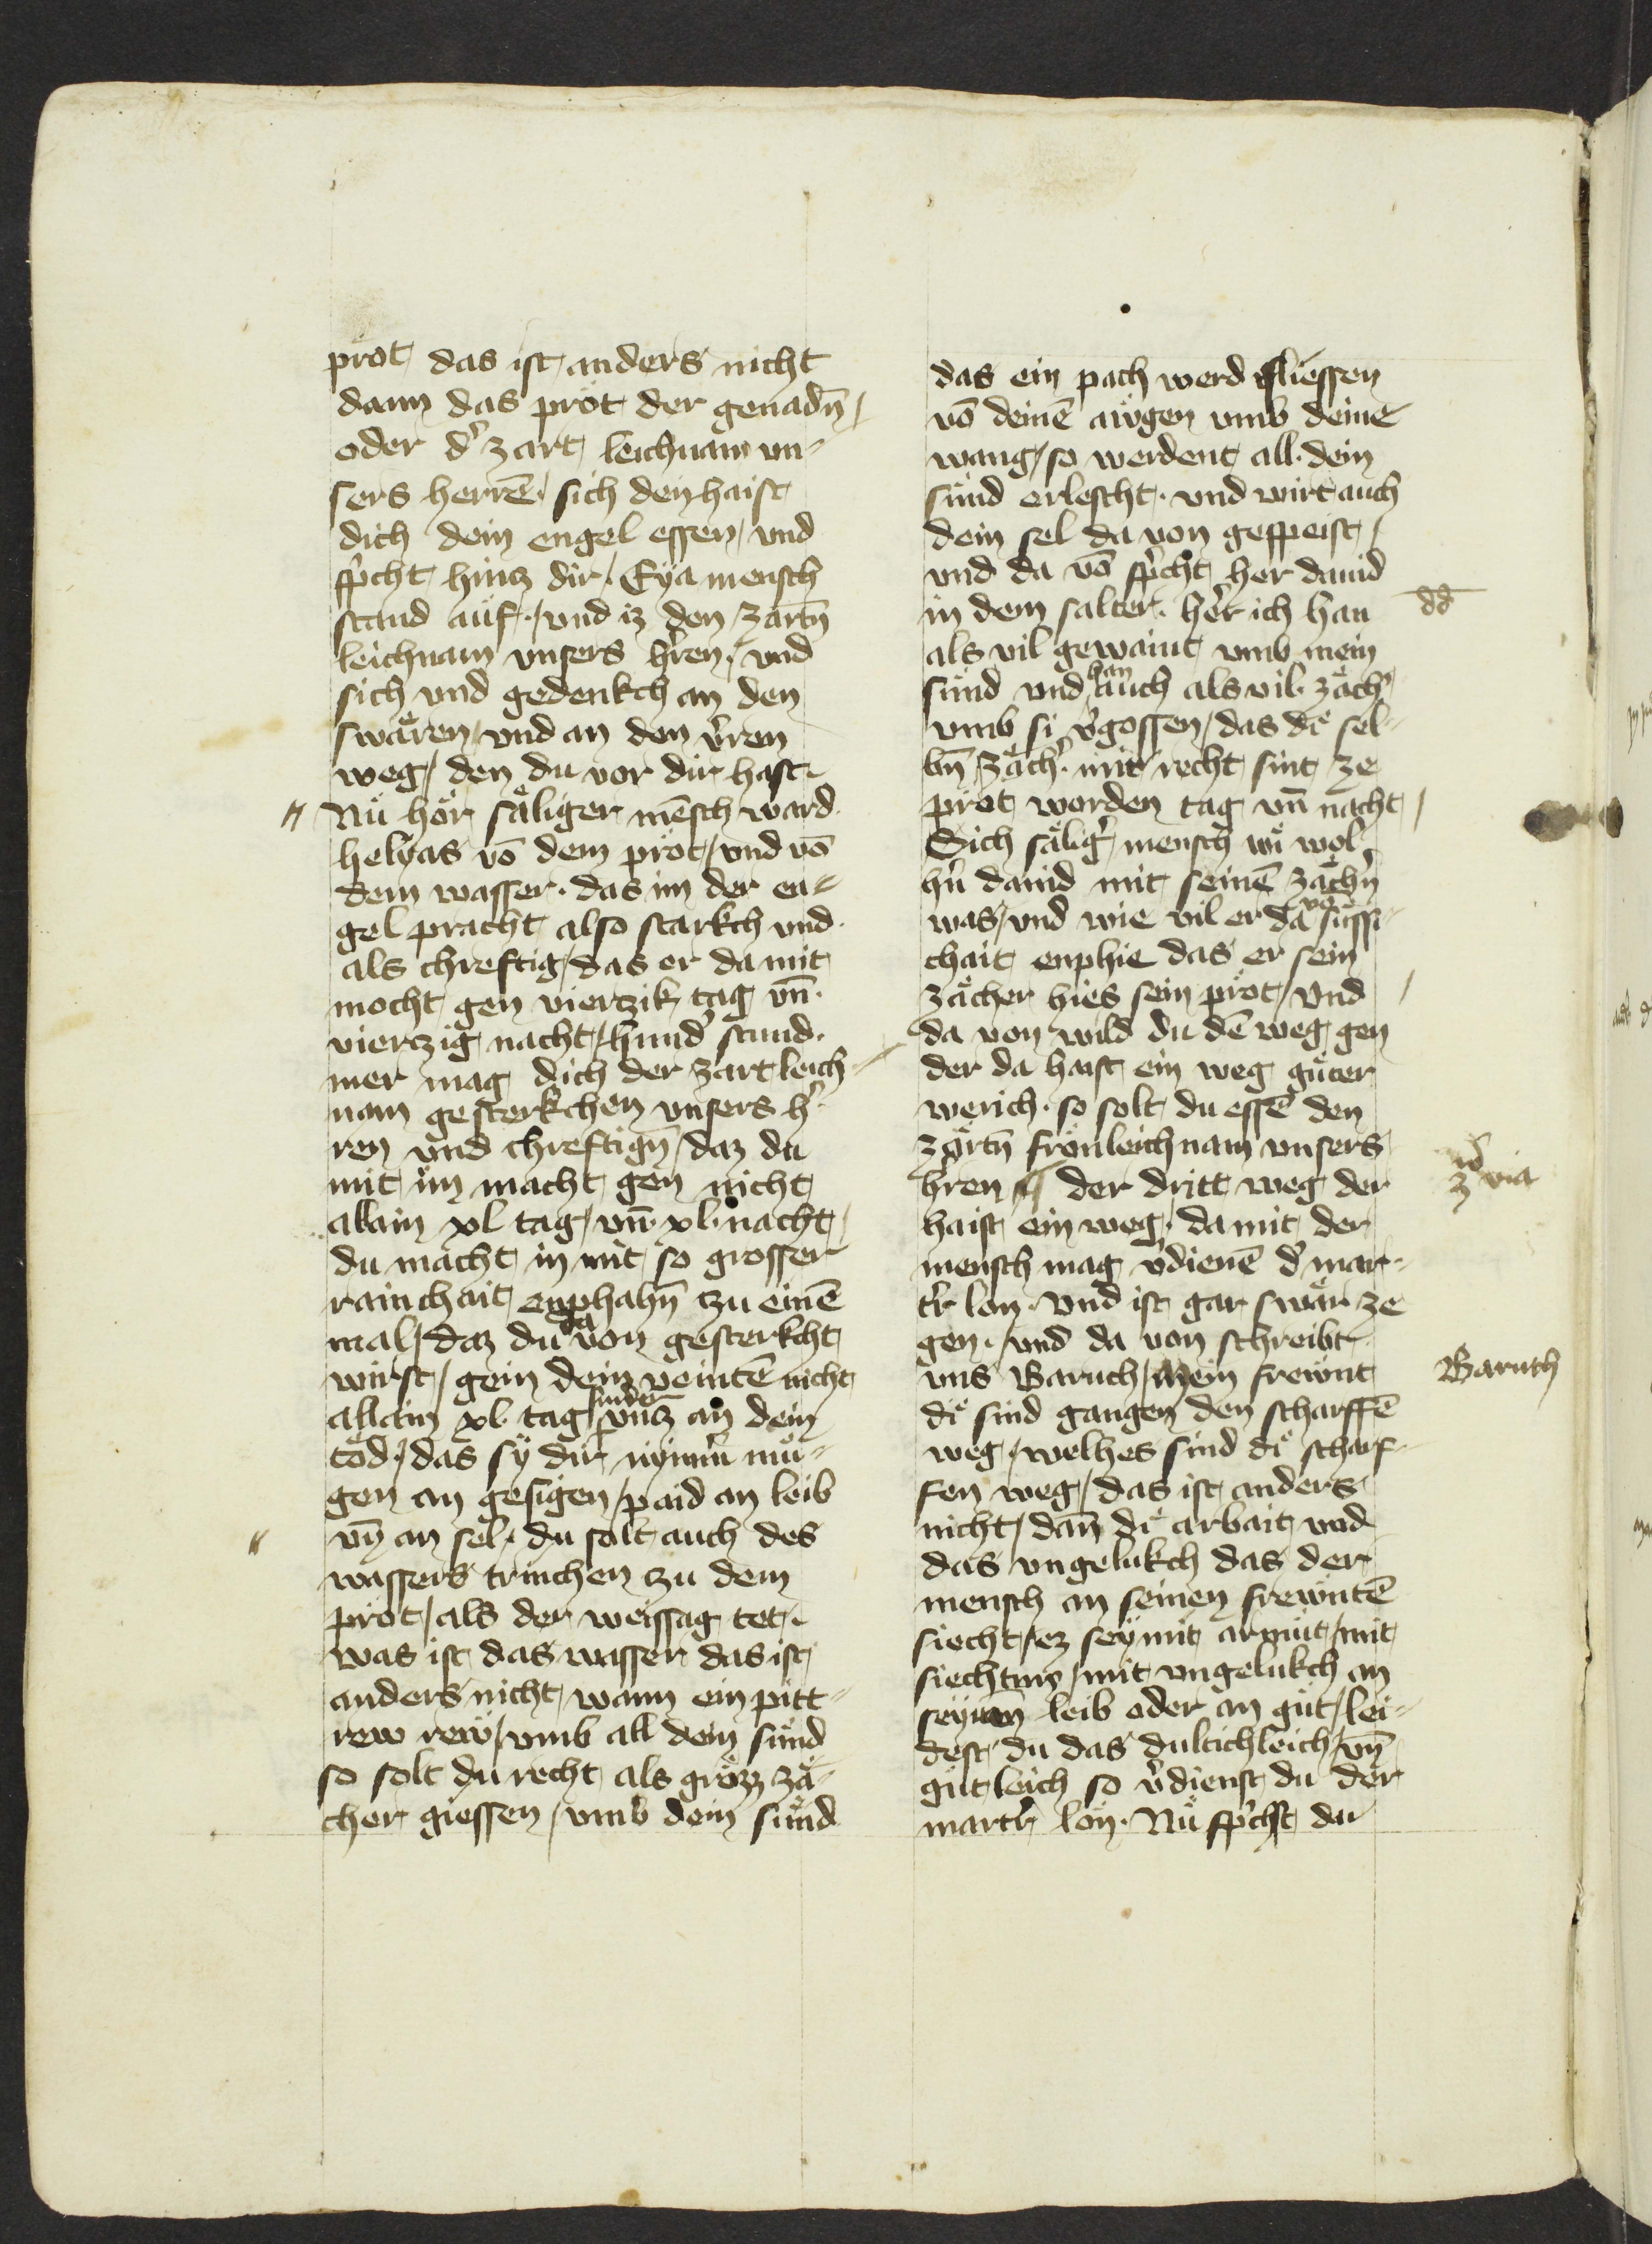 prot, das ist anders nicht
dann das prot der genadn̄ /
oder dʾ zart leichnam vn⸗
sers herrē · sich den haist
dich dein engel essen / vnd
spʾcht hintz dir / Eya mensch
stand auf · / vnd iz den zartn̄
leichnam vnsers hʾren · vnd
sich vnd gedenkch an den
swaͤren / vnd an den vʾren
weg / den du vor dir hast ·
Nu hoͤr saͤliger mēsch ward
helyas vō dem prot / vnd vō
dem wasser · das im der en⸗
gel pracht also starkch vnd
als chreftig / das er da mit
mocht gen viertzik tag vn̄ ·
viertzig nacht / hundʾ stund ·
mer mag dich der zart leich⸗
nam gesterkchen vnsers hʾ⸗
ren vnd chreftign̄ / daz du
mit im macht gen nicht
allain xl tag / vn̄ · xl · nacht /
du macht in mit so grosser
rainchait enphahn̄ tzu einē
mal / daz du da von gesterkcht
wirst / gein dein veintē nicht
allain xl tag sunder vntz an dein
tod · / das sy dir nymʾ mu⸗
gen an gesigen / paid an leib
vn̄ an sel · du solt auch des
wassers trinchen tzu dem
prot / als der weissag tet ·
was ist das wasser das ist
anders nicht / wann ein pitt⸗
rew rew / vmb all dein sund
so solt du recht als grozz zaͤ⸗
cher giessen / vmb dein sund
das ein pach werd fliessen
vō deinē awgen vmb deine
wang / so werdent all · dein
sund erlescht · vnd wirt auch
dein sel da von gespeist /
vnd da vō spʾcht her dauid
in dem salter · her ich han
als vil gewaint vmb mein
sund vnd han auch als vil · zaͤchʾ
vmb si vʾgossen / das di sel⸗
bn̄ zaͤchʾ · mit recht sint ze
prot worden tag vn̄ nacht /
Sich saͤligʾ mensch wi wol
hʾn dauid mit seinē zaͤchʾn
was / vnd wie vil er da vō suͤssi⸗
chait enphie das er sein
zaͤcher hies sein prot / vnd
da von wild du dē weg gen
der da haist ein weg guter
werich · so solt du essē den
zartn̄ fronleichnam vnsers
hʾren ¶ der dritt weg der
haist ein weg · da mit der
mensch mag vʾdienē dʾ mar⸗
tʾr lon · vnd ist gar swaͤr ze
gen · / vnd da von schreibt
vns Baruch / mein frewnt
di sind gangen den scharffē
weg / welhes sind di scharf⸗
fen weg / das ist anders
nicht / dan̄ di arbait vnd
das vngelukch das der
mensch an seinen frewntē
siecht / ez sey mit armut / mit
siechtum / mit vngelukch an
seynem leib oder an gut / lei⸗
dest du das dultichleich / vn̄
gutleich so vʾdienst du der
martrʾ lon · Nu spʾchst du
dd
3ᵃ via
Baruch